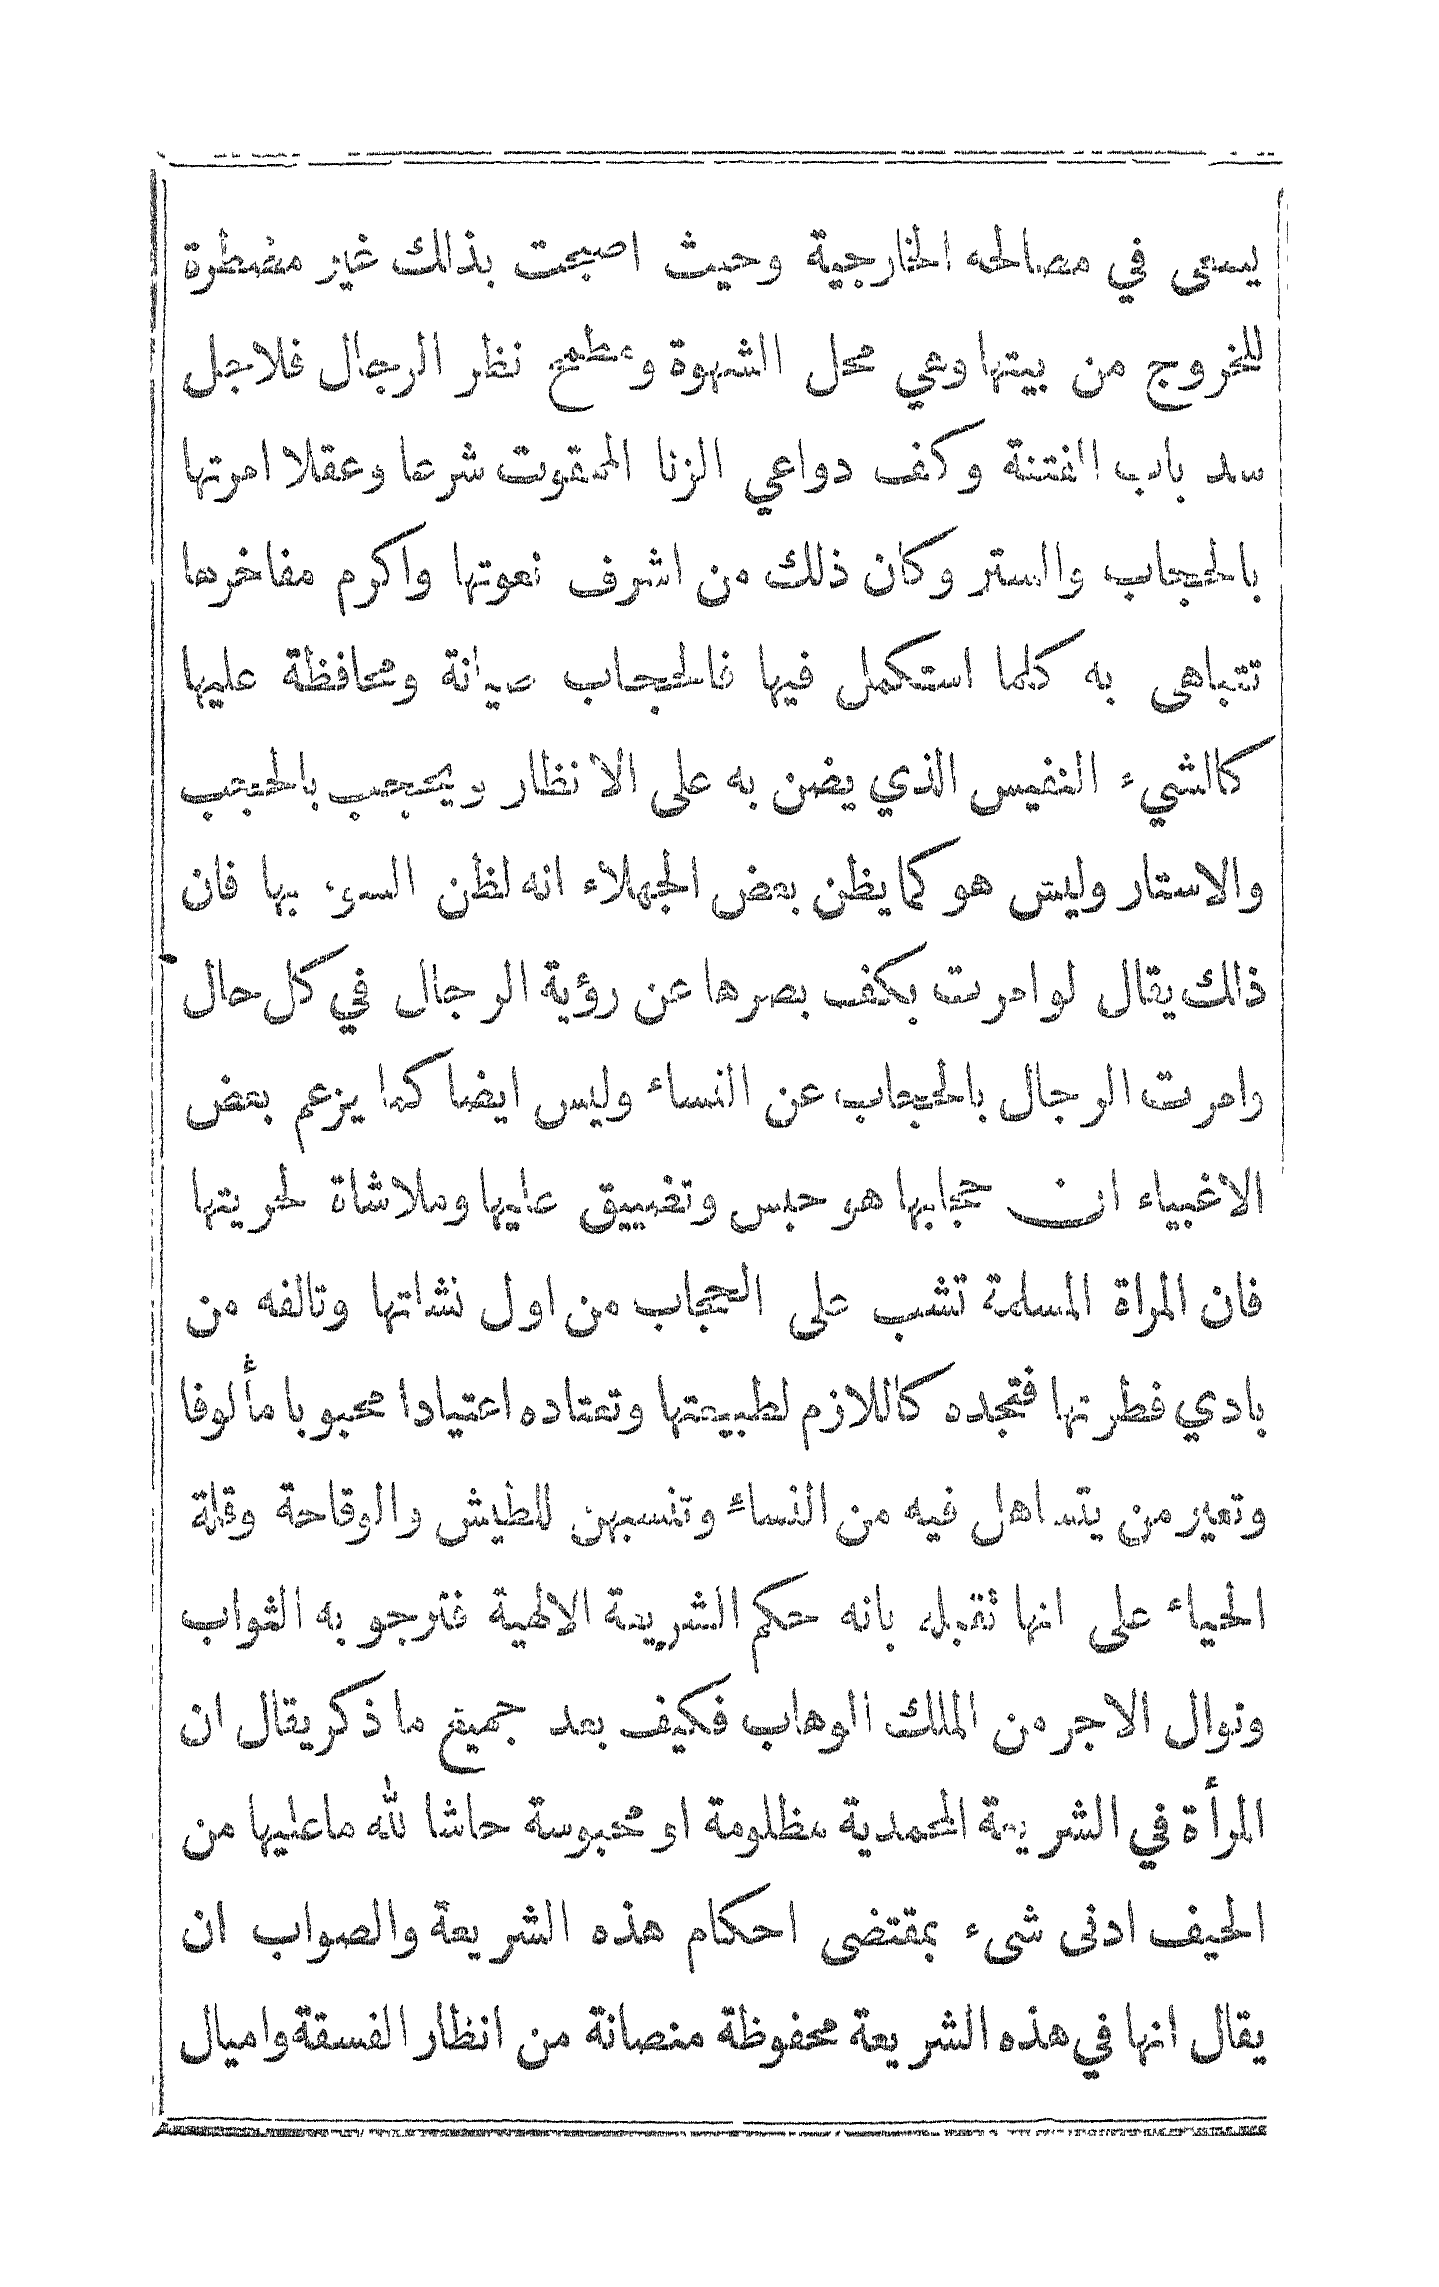 يسعى في مصالحه الخارجية وحيث اصبحت بذلك غير مضطرة
للخروج من بيتها وهي محل الشهوة ومطمح نظر الرجال فلاجل
سد باب الفتنة وكف دواعي الزنا الممقوت شرعا وعقلا امرتها
بالحجاب والستر وكان ذلك من اشرف نعوتها واكرم مفاخرها
تتباهى به كلما استكمل فيها فالحجاب صيانة ومحافظة عليها
كالشيء النفيس الذي يضن به على الانظار ويحجب بالحجب
والاستار وليس هو كما يظن بعض الجهلاء انه لظن السوء بها فان
ذلك يقال لو امرت بكف بصرها عن رؤية الرجال في كل حال
وامرت الرجال بالحجاب عن النساء وليس ايضا كما يزعم بعض
الاغبياء ان حجابها هو حبس وتضييق عليها وملاشاة لحريتها
فان المراة المسلمة تشب على الحجاب من اول نشاتها وتالفه من
بادي فطرتها فتجده كاللازم لطبيعتها وتعتاده اعتيادا محبوبا مأ لوفا
وتعير من يتساهل فيه من النساء وتنسبهن للطيش والوقاحة وقلة
الحياء على انها تقبله بانه حكم الشريعة الالهية فترجو به الثواب
ونوال الاجر من الملك الوهاب فكيف بعد جميع ما ذكر يقال ان
المرأة في الشريعة المحمدية مظلومة او محبوسة حاشا لله ما عليها من
الحيف ادنى شيء بمقتضى احكام هذه الشريعة والصواب ان
يقال انها في هذه الشريعة محفوظة منصانة من انظار الفسقة واميال